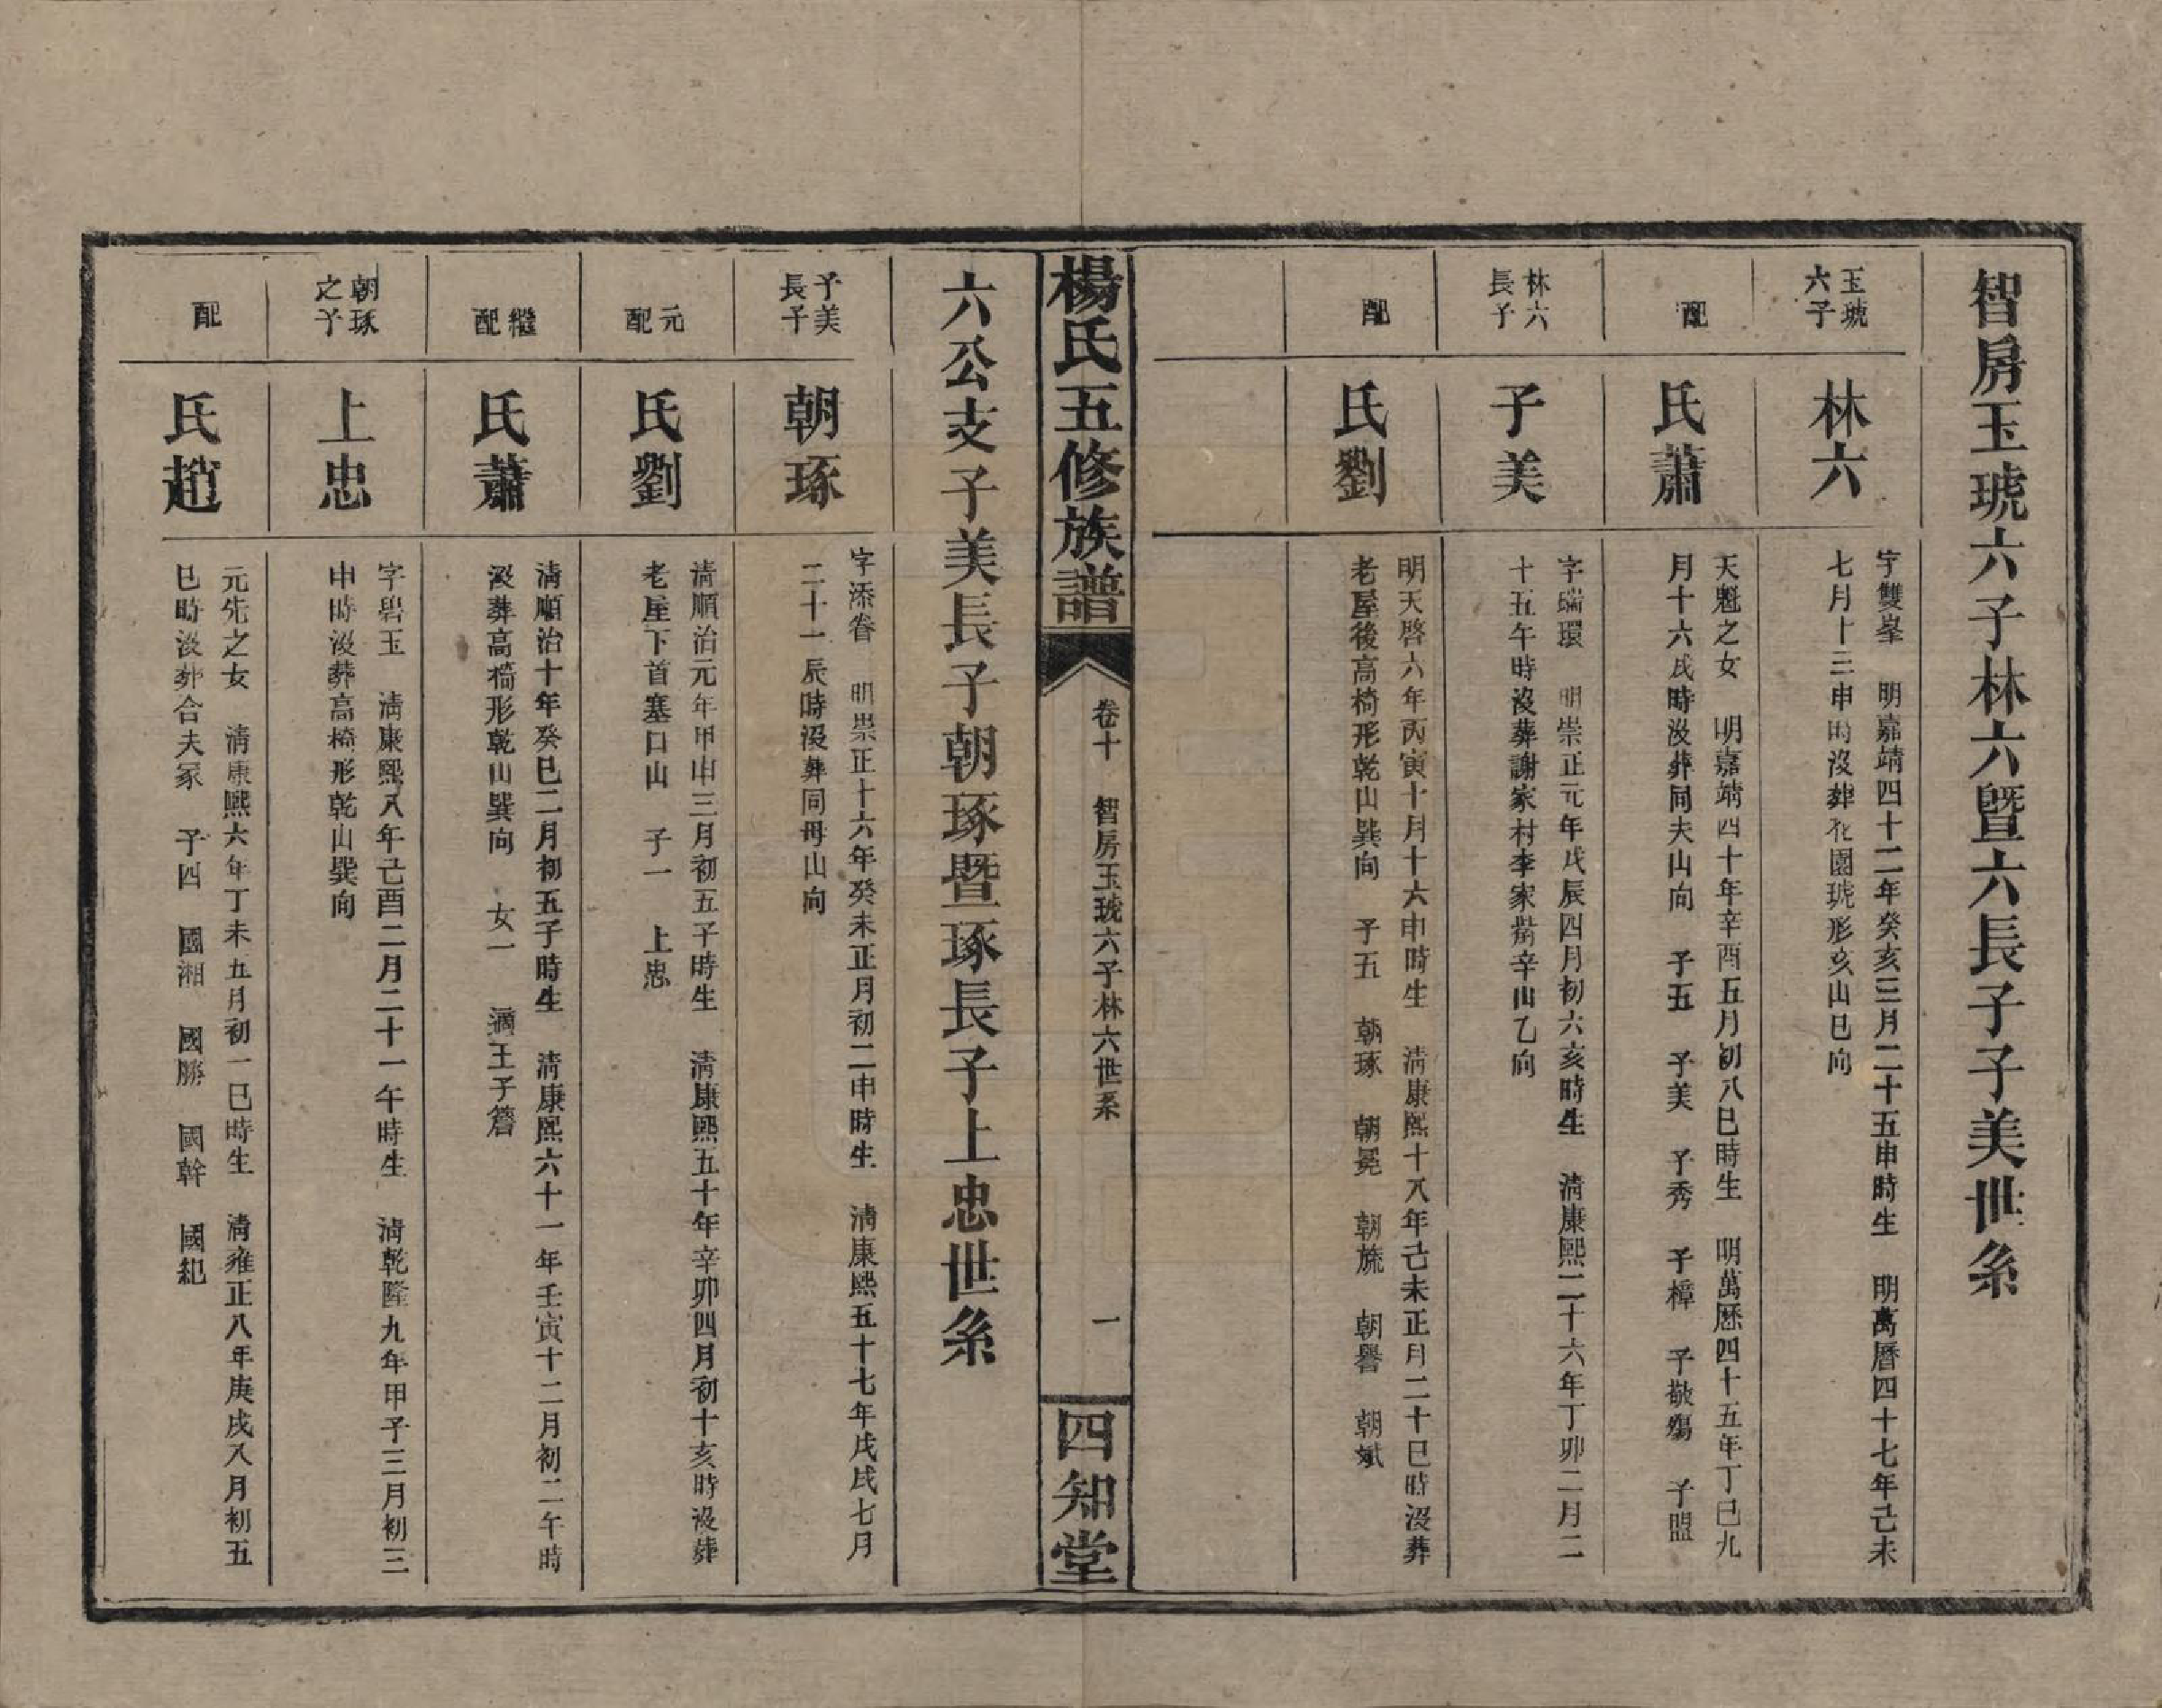 智房玉琥六子林六暨六長子子美世系
玉琥六子
林六
字雙峯 明嘉靖四十二年癸亥三月二十五申時生 明萬曆四十七年己未
七月十三申時沒葬花園琥形亥山巳向
配
氏蕭
天魁之女 明嘉靖四十年辛酉五月初八巳時生 明萬曆四十五年丁巳九
月十六戌時沒葬同夫山向 子五 子美 子秀 子樟 子敬殤 子盟
林六長子
子美
字瑞環 明崇正元年戊辰四月初六亥時生 清康熙二十六年丁卯二月二
十五午時沒葬謝家村李家嵴辛山乙向
配
氏劉
明天啓六年丙寅十月十六申時生 清康熙十八年己未正月二十巳時沒葬
老屋後高椅形乾山巽向 子五 朝琢 朝冕 朝旒 朝譽 朝斌
楊氏五修族譜
卷十 智房玉琥六子林六世系
一
四知堂
六公支子美長子朝琢暨琢長子上忠世系
子美長子
朝琢
字添眷 明崇正十六年癸未正月初二申時生 清康熙五十七年戊戌七月
二十一辰時沒葬同母山向
元配
氏劉
清順治元年甲申三月初五子時生 清康熙五十年辛卯四月初十亥時沒葬
老屋下首塞口山 子一 上忠
繼配
氏蕭
清順治十年癸巳二月初五子時生 清康熙六十一年壬寅十二月初二午時
沒葬高椅形乾山巽向 女一 適王子簷
朝琢之子
上忠
字碧玉 清康熙八年己酉二月二十一午時生 清乾隆九年甲子三月初三
申時沒葬高椅形乾山巽向
配
氏趙
元先之女 清康熙六年丁未五月初一巳時生 清雍正八年庚戌八月初五
巳時沒葬合夫冢 子四 國湘 國勝 國幹 國紀